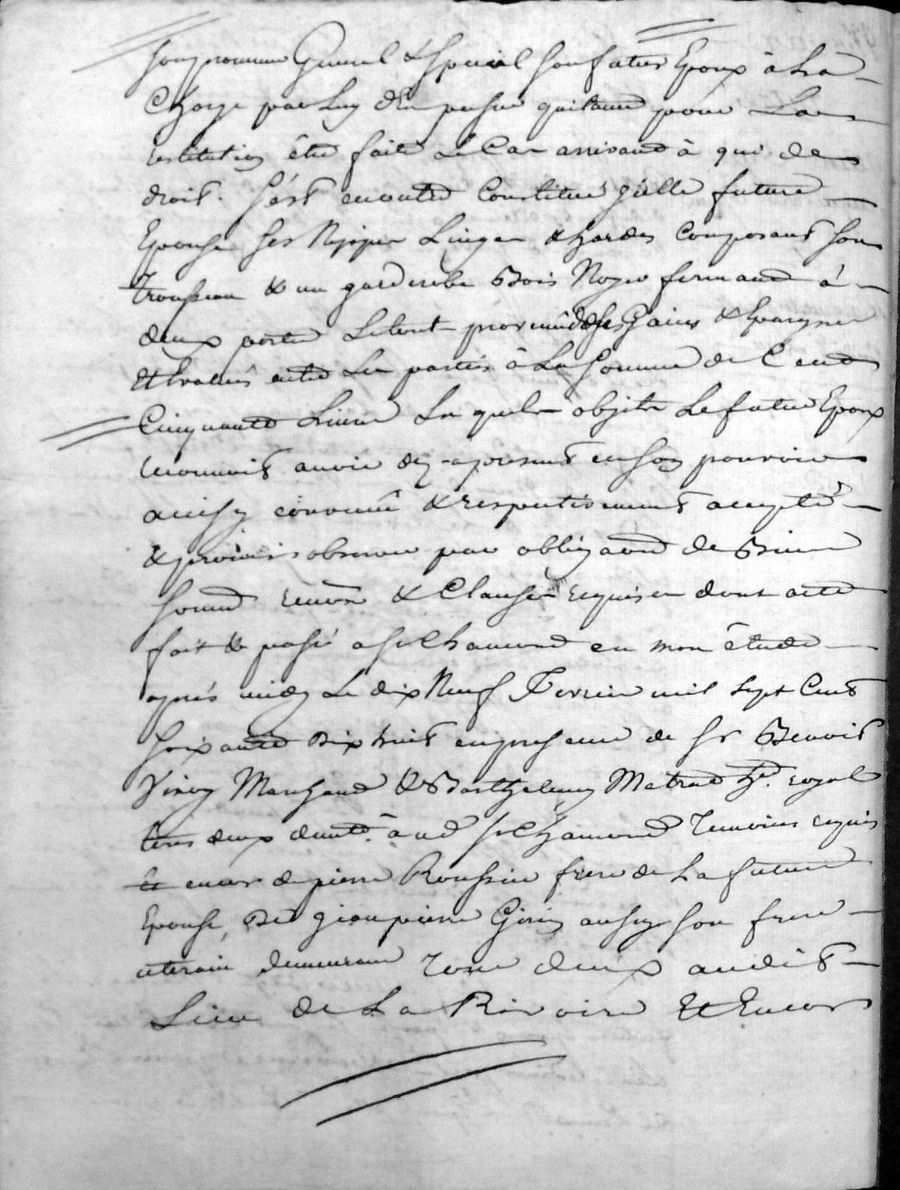 son procureur General & special son futur Epoux à La
Charge par Luy d'En passer quitance pour La
restitution être faite Le Cas arrivand à qui de
droit. S'est encontre Constitué Jelle future
Epouse ses Nippes Linges & hardes Composant son
trousseau & un garderobe Bois Noyer fermand à
deux portes Letout provenu de ses Gains & Epargnes
Et Evalués entre Les parties à La somme de Cend
Cinquante Livres Les quels objets Le futur Epoux
reconnoit avoir dez-aprésent en son pouvoir
ainsy convenu & respectivement accepté
& promis observer par obligaond de Biens
soumd renon & Clauses requises dont acte
fait & passé a St Chamond en mon étude
après midy Le dix Neuf Fevrier mil sept Cent
soixante Dix huit en presence de Sr Benoit
Marchand & Barthelemy Matrad hr. royal
tous deux demt. à ud St Chamond Temoins requis
encor de pierre Roussin frere de La future
Epouse, De Jean pierre Girin aussy son frere
uterain demeurant Tous deux audit
Lieu de La Rivoire Et Encore